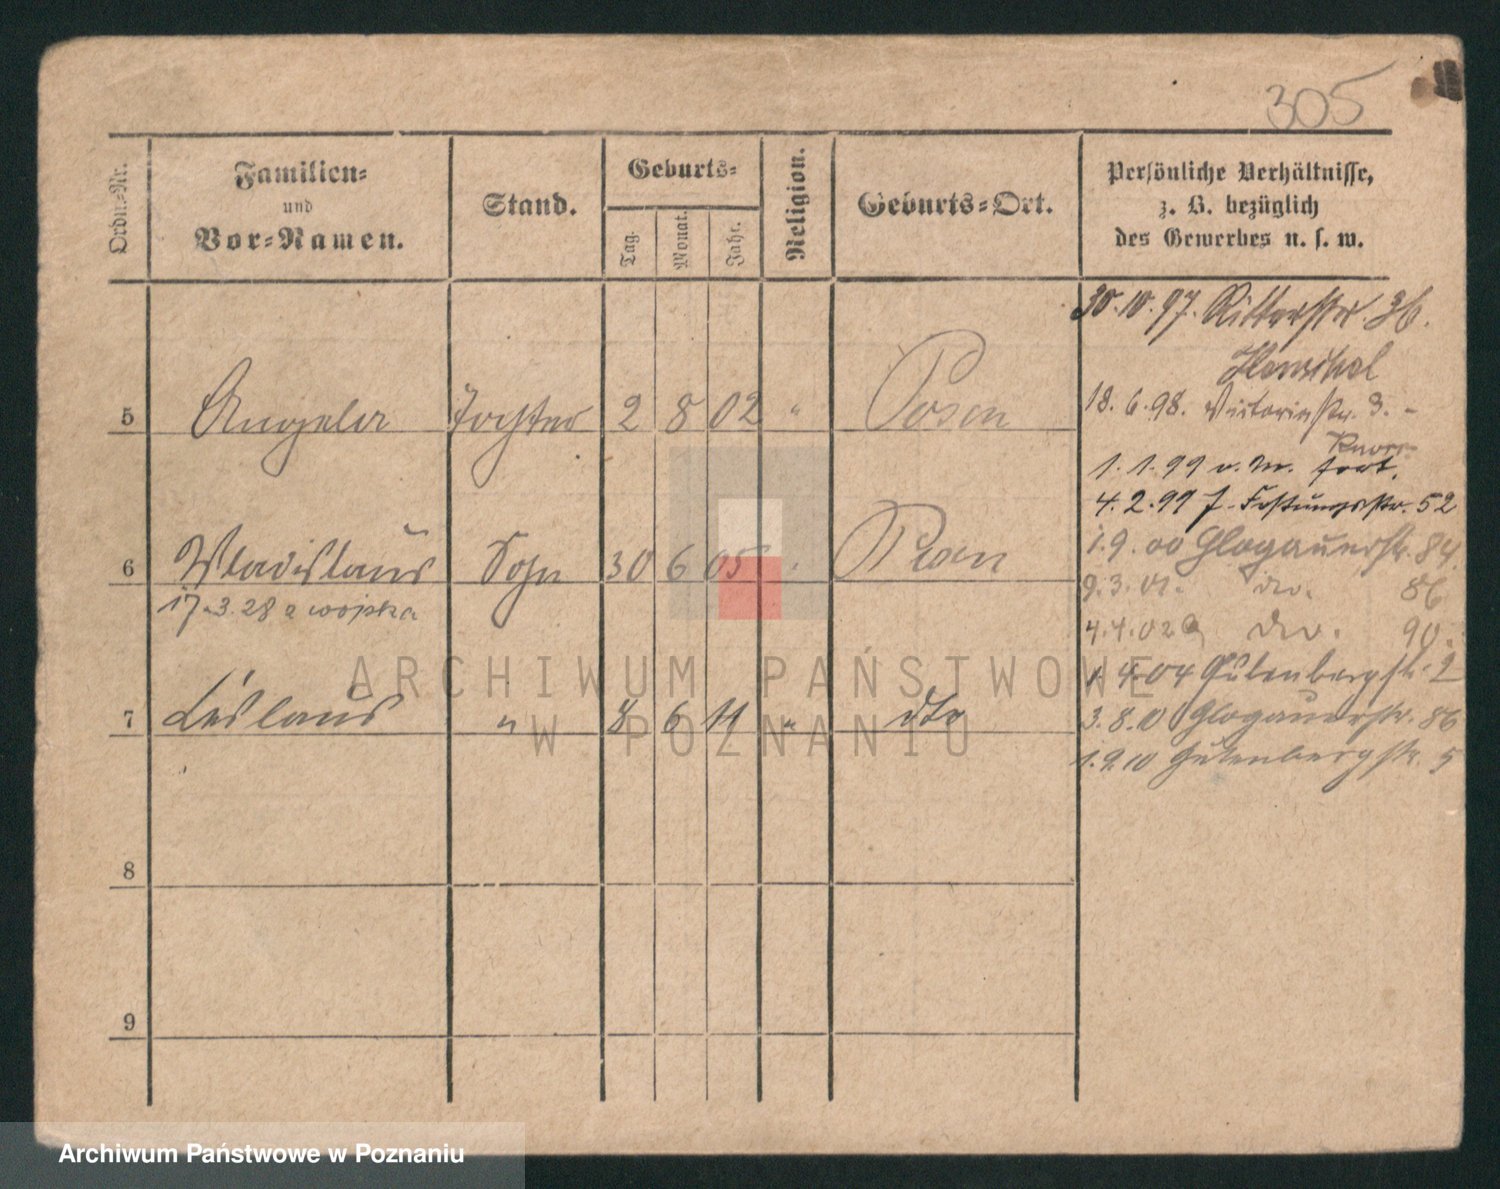 305
Ordn.-Nr.
Familien-
und
Vor-Namen.
Stand.
Geburts-
Tag.
Monat.
Jahr.
Religion.
Geburts-Ort.
Persönliche Verhältnisse,
z. B. bezüglich
des Gewerbes u. s. w.
30.10.97. Ritterstr 36.
18.6.98. Victoriastr. 3. -
1.1.99 v. M. fort.
4.2.99 J. Festungsstr. 52
1.9.00 Glogauerstr. 84.
9.3.01. do. 86
4.4.02 do. 90.
1.4.04 Gutenbergstr. 2
3.8.0 Glogauerstr. 86
1.9.10 Gutenbergstr. 5
5 Angela Tochter 2 8 02 " Posen
6 Wladislaus Sohn 30 6 05 " Posen
17.3.28 z wojska
7 Leslaus " 8 6 11 " dto
8
9
ARCHIWUM PAŃSTWOWE
W POZNANIU
Archiwum Państwowe w Poznaniu